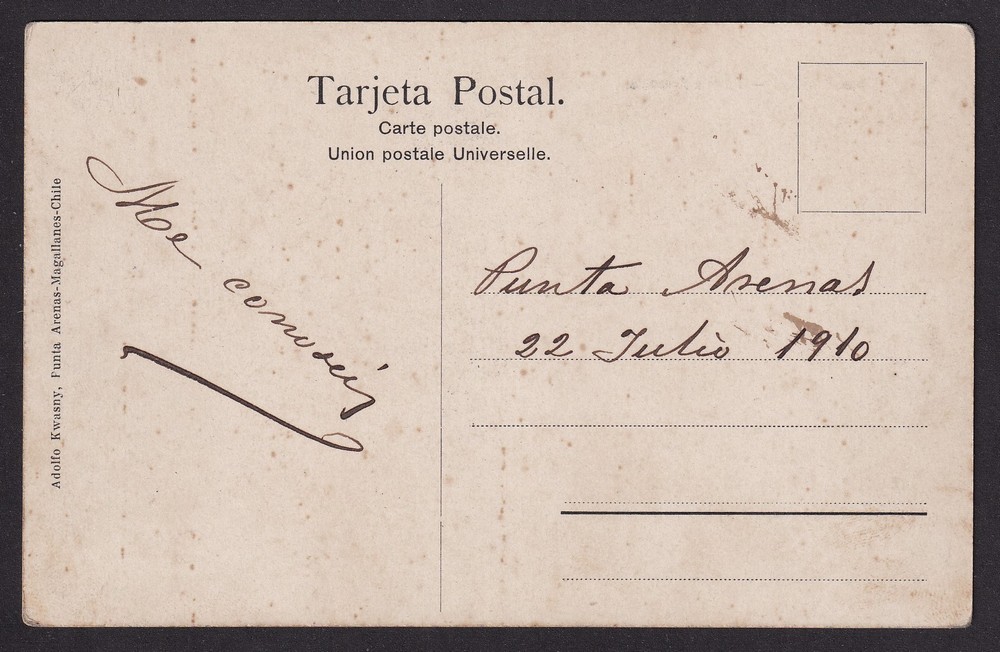 Tarjeta Postal.
Carte postale.
Union postale Universelle.
Adolfo Kwasny, Punta Arenas-Magallanes-Chile
Me conoceis
Punta Arenas
22 Julio 1910